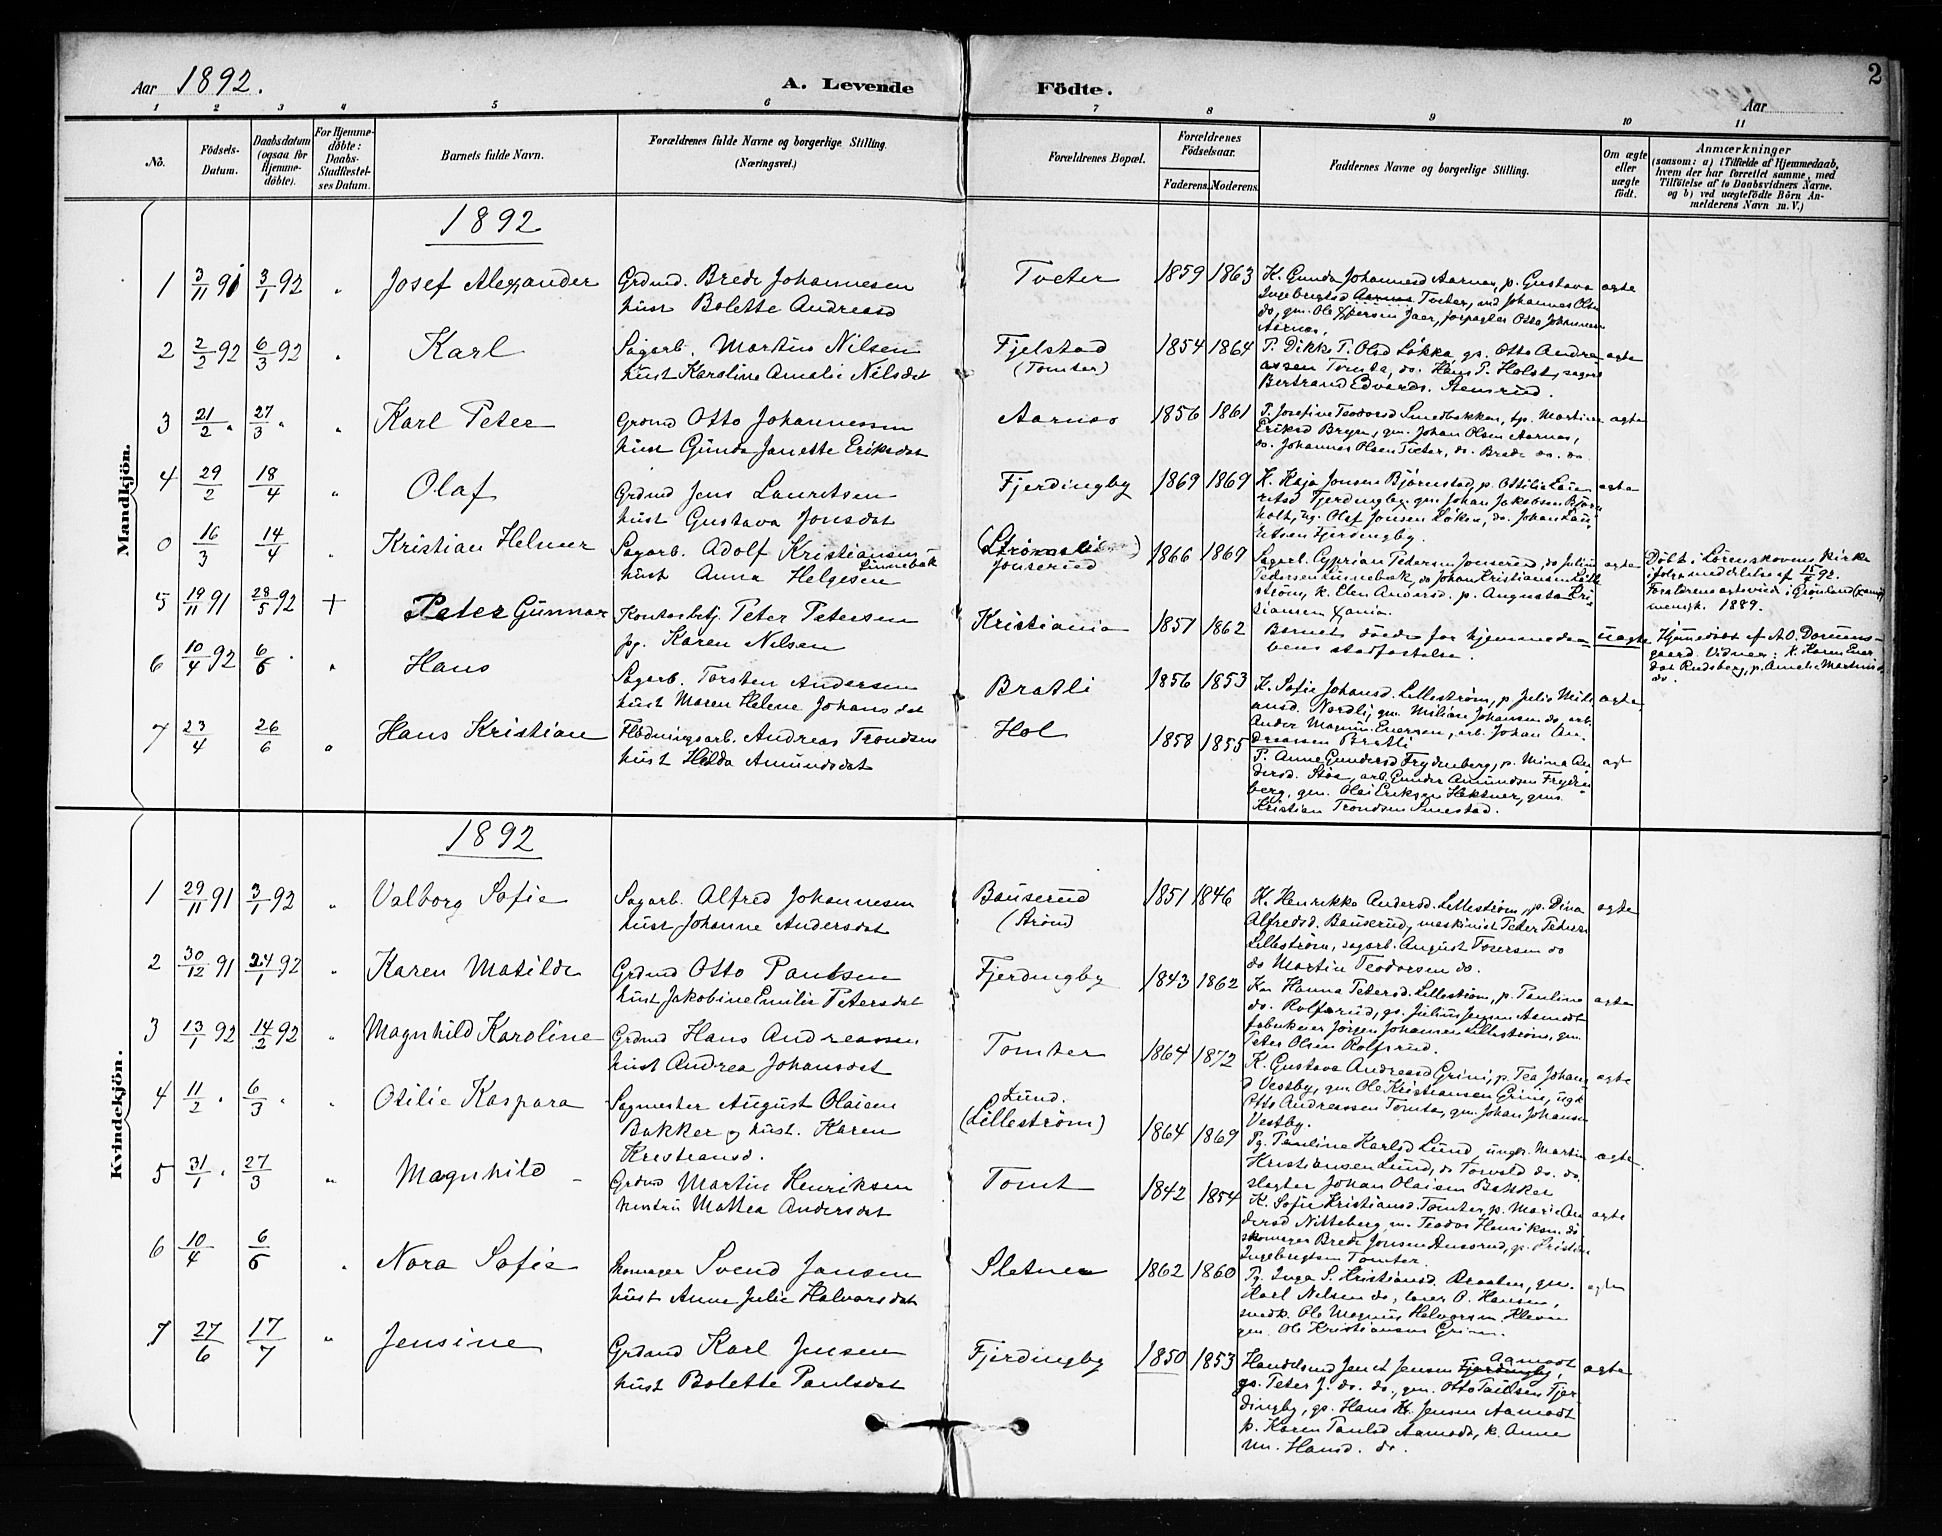 Aar 1892.
A. Levende Födte.
2
Aar
1 2 3 4 5 6 7 8 9 10 11
No.
Födsels-Datum.
Daabsdatum (ogsaa for Hjemme-döbte).
For Hjemme-döbte: Daabs-Stadfæstel-ses Datum.
Barnets fulde Navn.
Forældrenes fulde Navne og borgerlige Stilling. (Næringsvei.)
Forældrenes Bopæl.
Forældrenes Födselsaar.
Faderens. Moderens.
Faddernes Navne og borgerlige Stilling.
Om ægte eller uægte födt.
Anmærkninger
(saasom: a) i Tilfælde af Hjemmedaab, hvem der har forrettet samme, med Tilföielse af to Daabsvidners Navne. og b) ved uægtefödte Börn An-melderens Navn m. V.)
Mandkjön.
1892
1 3/11 91 3/1 92 " Josef Alexander Grdmd. Brede Johannesen
hust Bolette Andreasd
Tveter 1859 1863
K. Gunda Johannesd Aarnæs, p. Gustava
Ingebrigtsd Aarnæs Tveter, md Johannes Olsen
do, gm. Ole Iversen Jaer, forpagter Otto Johannesen
Aarnæs.
ægte
2 2/2 92 6/3 92 " Karl Sagarb. Martin Nilsen
hust Karoline Amalie Nilsdat
Fjelstad
(Tomter)
1854 1864
P. Dikke T. Olsd Løkka, gs. Otto Andre
assen Tomta, do. Hans P. Holst, sagarb
Bertrand Edvards. Stensrud.
ægte
3 21/2 " 27/3 " " Karl Peter Grdmd Otto Johannessen
hust Gunda Janette Eriksdat
Aarnæs 1856 1861
P. Josefine Teodorsd Smedbakken, tp. Martine
Eriksd Bryn, gm. Johan Olsen Aarnæs,
do. Johannes Olsen Tveter, do. Brede do. do.
ægte
4 29/2 18/4 " Olaf Grdmd Jens Lauritsen
hust Gustava Jonsdat
Fjerdingby 1869 1869
K. Kaja Jonsen Bjørnstad, p. Ottilie Lau
ritsd Fjerdingby, gm Johan Jakobsen Bjørn
holt, ug. Olaf Jonsen Løken, do. Johan Lau
ritsen Fjerdingby.
ægte
0 16/3 14/4 " Kristian Helmer Sagarb. Adolf Kristiansen Linnebæk
hust Anna Helgesen
(Strømslien)
Jonserud
1866 1869
Sagarb. Cyprian Pedersen Jonserud, do Julius
Pedersen Linnebæk, do Johan Kristiansen Lille
strøm, k. Elen Andersd. p. Augusta Kri
stiansen Xania.
ægte
Døbt i Lørenskovens kirke
ifølge meddelelse af 15/4 92.
Forældrene ægteviede i Grønland (Xania)
menigh. 1889.
5 19/11 91 28/5 92 + Peter Gunnar Kontorbetj. Peter Petersen
pg. Karen Nilsen
Kristiania 1857 1862
Barnet døde før hjemmedaa
bens stadfæstelse.
uægte
Hjemmedøbt af A.O. Dorums-
gaard. Vidner: k. Karen Ever
dat Rudsberg, p. Amelie Martinsd
do.
6 10/4 92 6/6 " " Hans Sagarb. Torsten Andersen
hust Maren Helene Johansdat
Bratli 1856 1853
K. Sofie Johansd. Lillestrøm, p Julie Mili
ansd. Nordli, gm. Milian Johansen do, arb.
Ander Magnus Enersen, arb. Johan An-
dreassen Bratli
ægte
7 23/4 26/6 " Hans Kristian Flødningsarb. Andreas Trondsen
hust Hilda Amundsdat
Hol 1858 1855
P. Anne Gundersd Frydenberg, p. Mina An
dersd. Støa, arb. Gunder Amundsen Fryden
berg, gm. Olai Eriksen Hektner, gms.
Kristian Trondsen Smestad.
ægt
Kvindekjön.
1892
1 29/11 91 3/1 92 " Valborg Sofie Sagarb. Alfred Johannesen
hust Johanne Andersdat
Bauserud
(Strøm)
1851 1846
K. Henrikke Andersd. Lillestrøm, p. Dina
Alfredsd. Bauserud, maskinist Peter Peters.
Lillestrøm, sagarb. August Iversen do
do Martin Teodorsen do.
ægte
2 30/12 91 24/1 92 " Karen Matilde Grdmd Otto Paulsen
hust Jakobine Emilie Petersdat
Fjerdingby 1843 1862
K. Hanna Petersd. Lillestrøm, p. Pauline
do. Rolfsrud, gs. Julius Jensen Aamodt
fabrikeier Jørgen Johansen Lillestrøm, gm.
Peter Olsen Rolfsrud.
ægte
3 13/1 92 14/2 92 " Magnhild Karoline Grdmd Hans Andreassen
hust Andrea Johansdat
Tomter 1864 1872
K. Gustava Andreasd Grini, p. Tea Johans
d Vestby, gm Ole Kristiansen Grini, ugk
Otto Andreassen Tomta, gm. Johan Johansen
Vestby.
ægte
4 11/2 " 6/3 " " Otilie Kaspara Sagmester August Olaisen
Bakker og hust. Karen
Kristiansd.
Lund.
(Lillestrøm)
1864 1869
Pg. Pauline Karlsd Lund, ungk. Martin
Kristiansen Lund, do Torvald do. do.
slagter Johan Olaisen Bakker
ægte.
5 31/1 " 27/3 " Magnhild Grdmd Martin Henriksen
hustru Mathea Andersdat
Tomt 1842 1854
K. Sofie Kristiansd. Tomter, p. Marie An
dersd Nitteberg, m. Teodor Henriksen do
skomager Brede Jonsen Aursrud, gs. Kristian
Ingebrigtsen Tomter.
ægte
6 10/4 6/6 " Nora Sofie Skomager Svend Jansen
hust Anne Julie Halvorsdat
Sletner 1862 1860
Pg. Inga S. Kristiansd. Braaten, gm.
Karl Nilsen do, lærer O. Hansen,
smedk. Ole Magnus Halvorsen Kleven
gm. Ole Kristiansen Grini.
ægte
7 27/6 17/7 " Jensine Grdmd Karl Jensen
hust Bolette Paulsdat
Fjerdingby 1850 1853
Handelsmd Jenet Jensen Fjerdingby, Aamodt
gs. Peter J. do. do., gm. Otto Paulsen Fjer
dingby, gs. Hans K. Jensen Aamodt
p. Karen Paulsd Aamodt, k. Anne
M. Hansd. do.
ægte